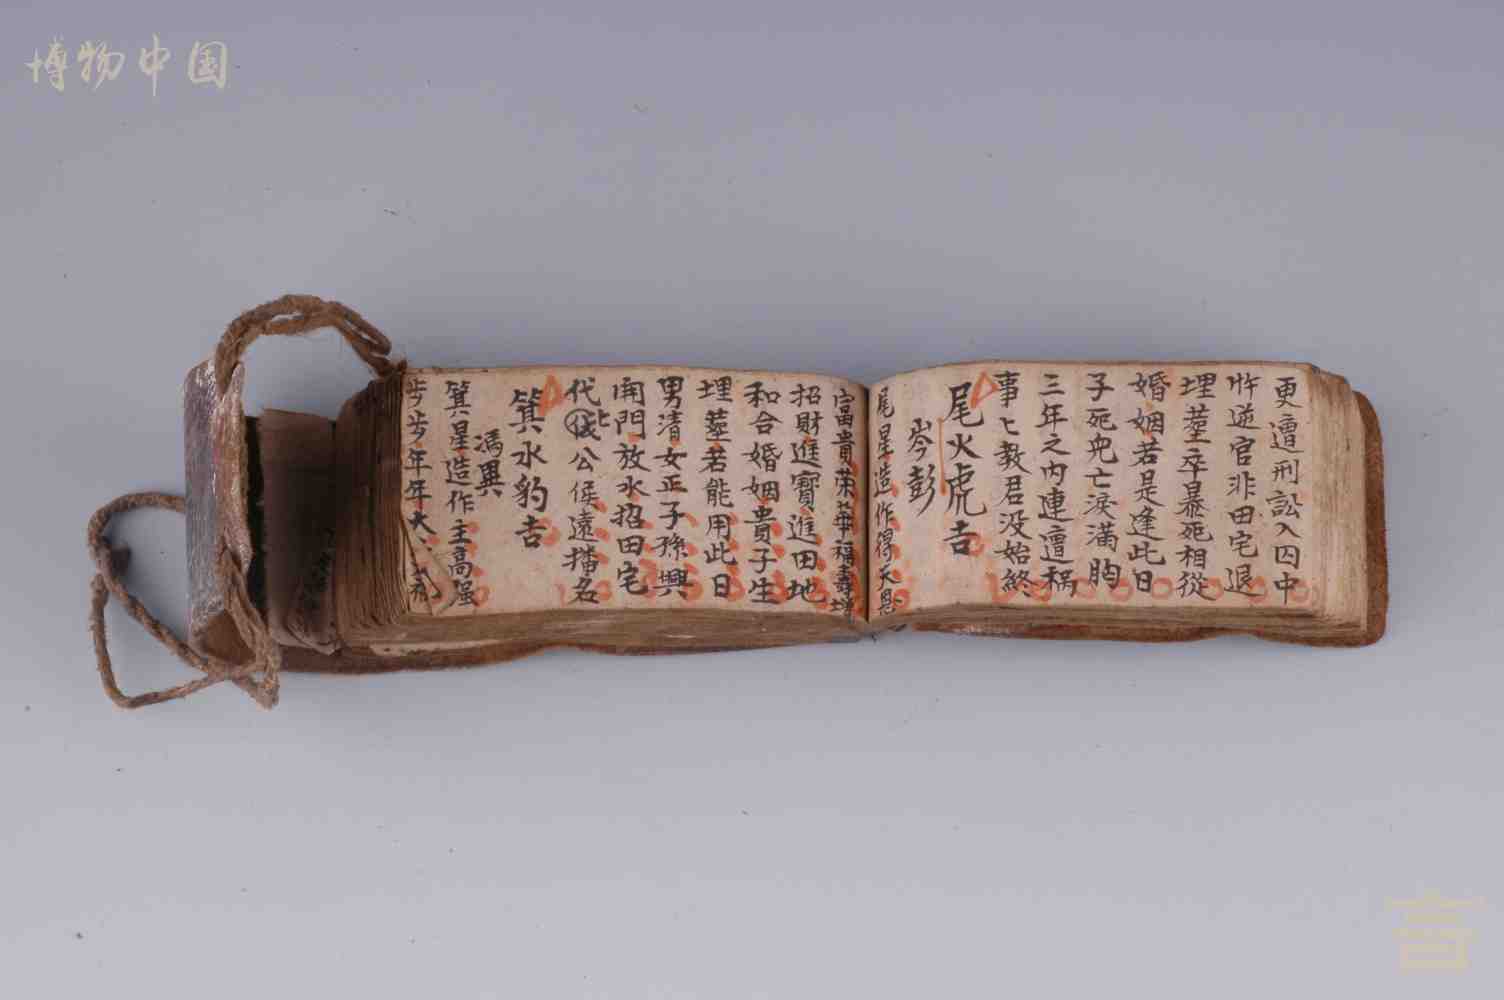 博物中国
更遭刑訟入囚中
官非田宅退
埋葬卒暴死相從
婚姻若是逢此日
子死児亡淚滿胸
三年之内連遭禍
事亡教君没始終
尾火虎吉
岑彭
尾星造作得天恩
富貴荣華福壽增
招財進寶進田地
和合婚姻貴子生
埋塟若能用此日
男清女正子孫興
開門放水招田宅
代代公侯遠播名
箕水豹吉
馮異
箕星造作主高强
步步年年大